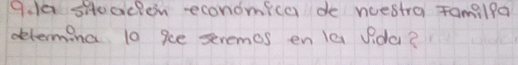 9. la situación económica de nuestra familia
determina lo que seremos en la vida?